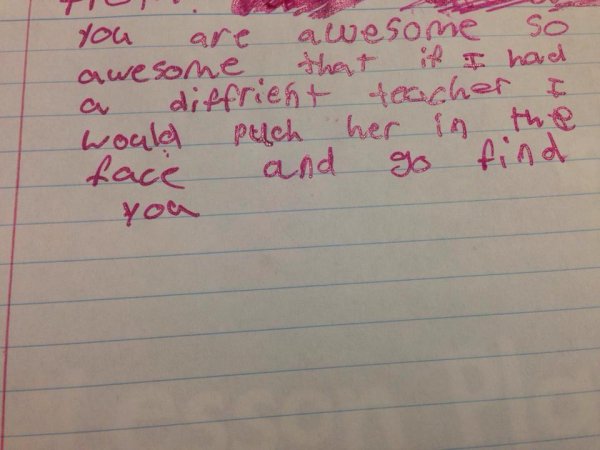 you are awesome so
awesome that if I had
a diffrient teacher I
would puch her in the
face and go find
you